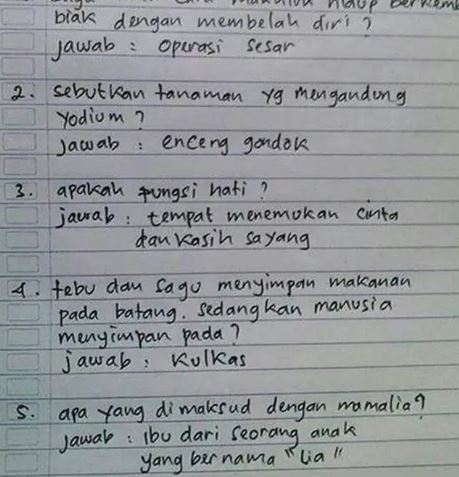 hidup berkem
biak dengan membelah diri ?
jawab : operasi sesar
2. sebutkan tanaman yg mengandung
yodium ?
Jawab : enceng gondok
3. apakah fungsi hati ?
jawab : tempat menemukan cinta
dan kasih sayang
4. tebu dan sagu menyimpan makanan
pada batang. sedangkan manusia
menyimpan pada ?
jawab : Kulkas
5. apa yang dimaksud dengan mamalia ?
Jawab : ibu dari seorang anak
yang bernama "Lia"